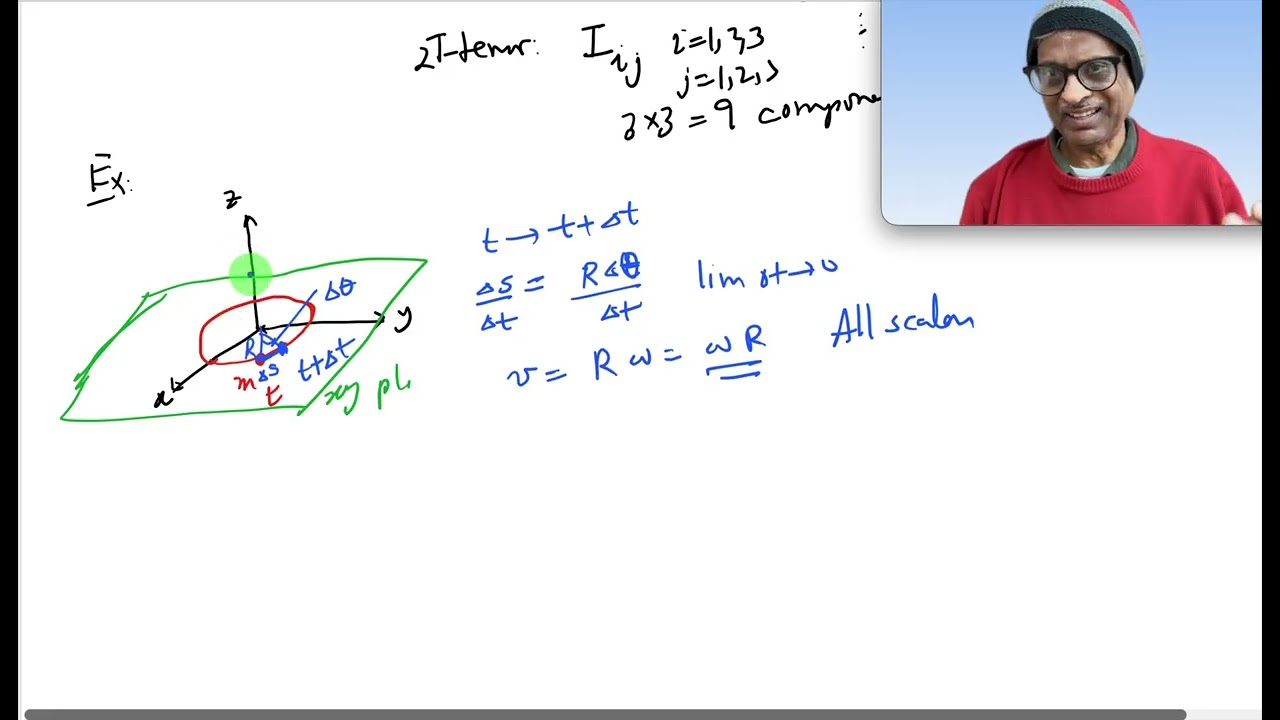 2T-tensor: I_ij i=1,2,3
j=1,2,3
3×3 = 9 compone
Ex:
z
y
x
R
Δθ
Δs
m
t
t+Δt
xy pl.
t → t+Δt
Δs/Δt = RΔθ/Δt lim Δt→0
v = R ω = ωR All scalars